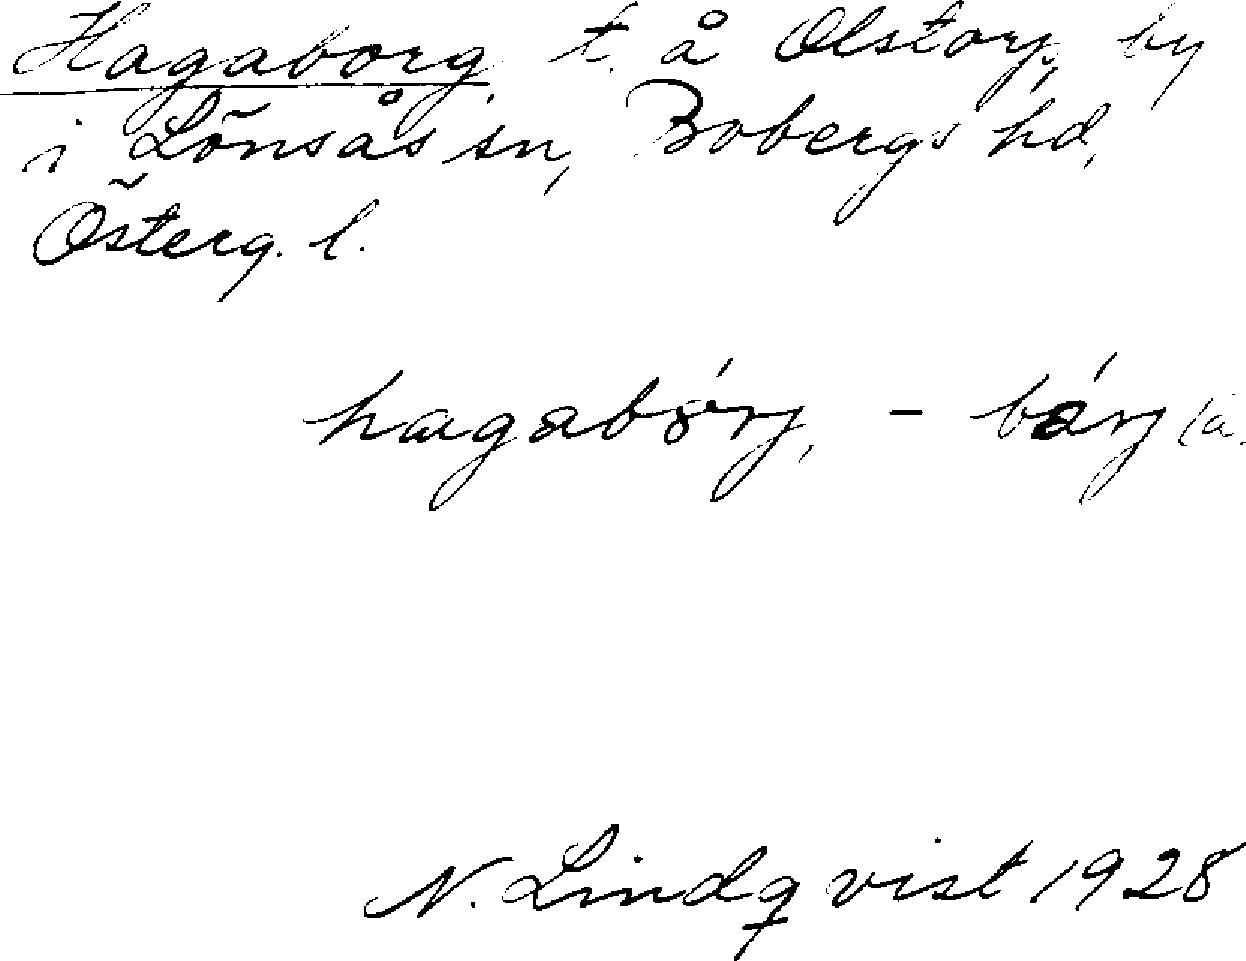 Hagaborg, t. å Olstorp, by
i Lönsås sn, Bobergs hd,
Österg. l.
hagabórj, - bárj (ä.
N. Lindqvist 1928